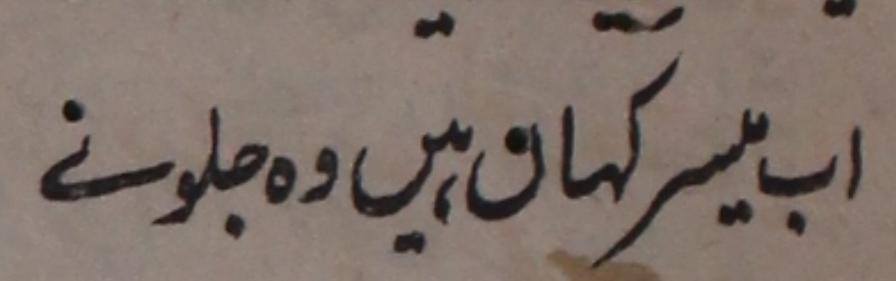 اب میسر کہان ہیں وہ جلونے